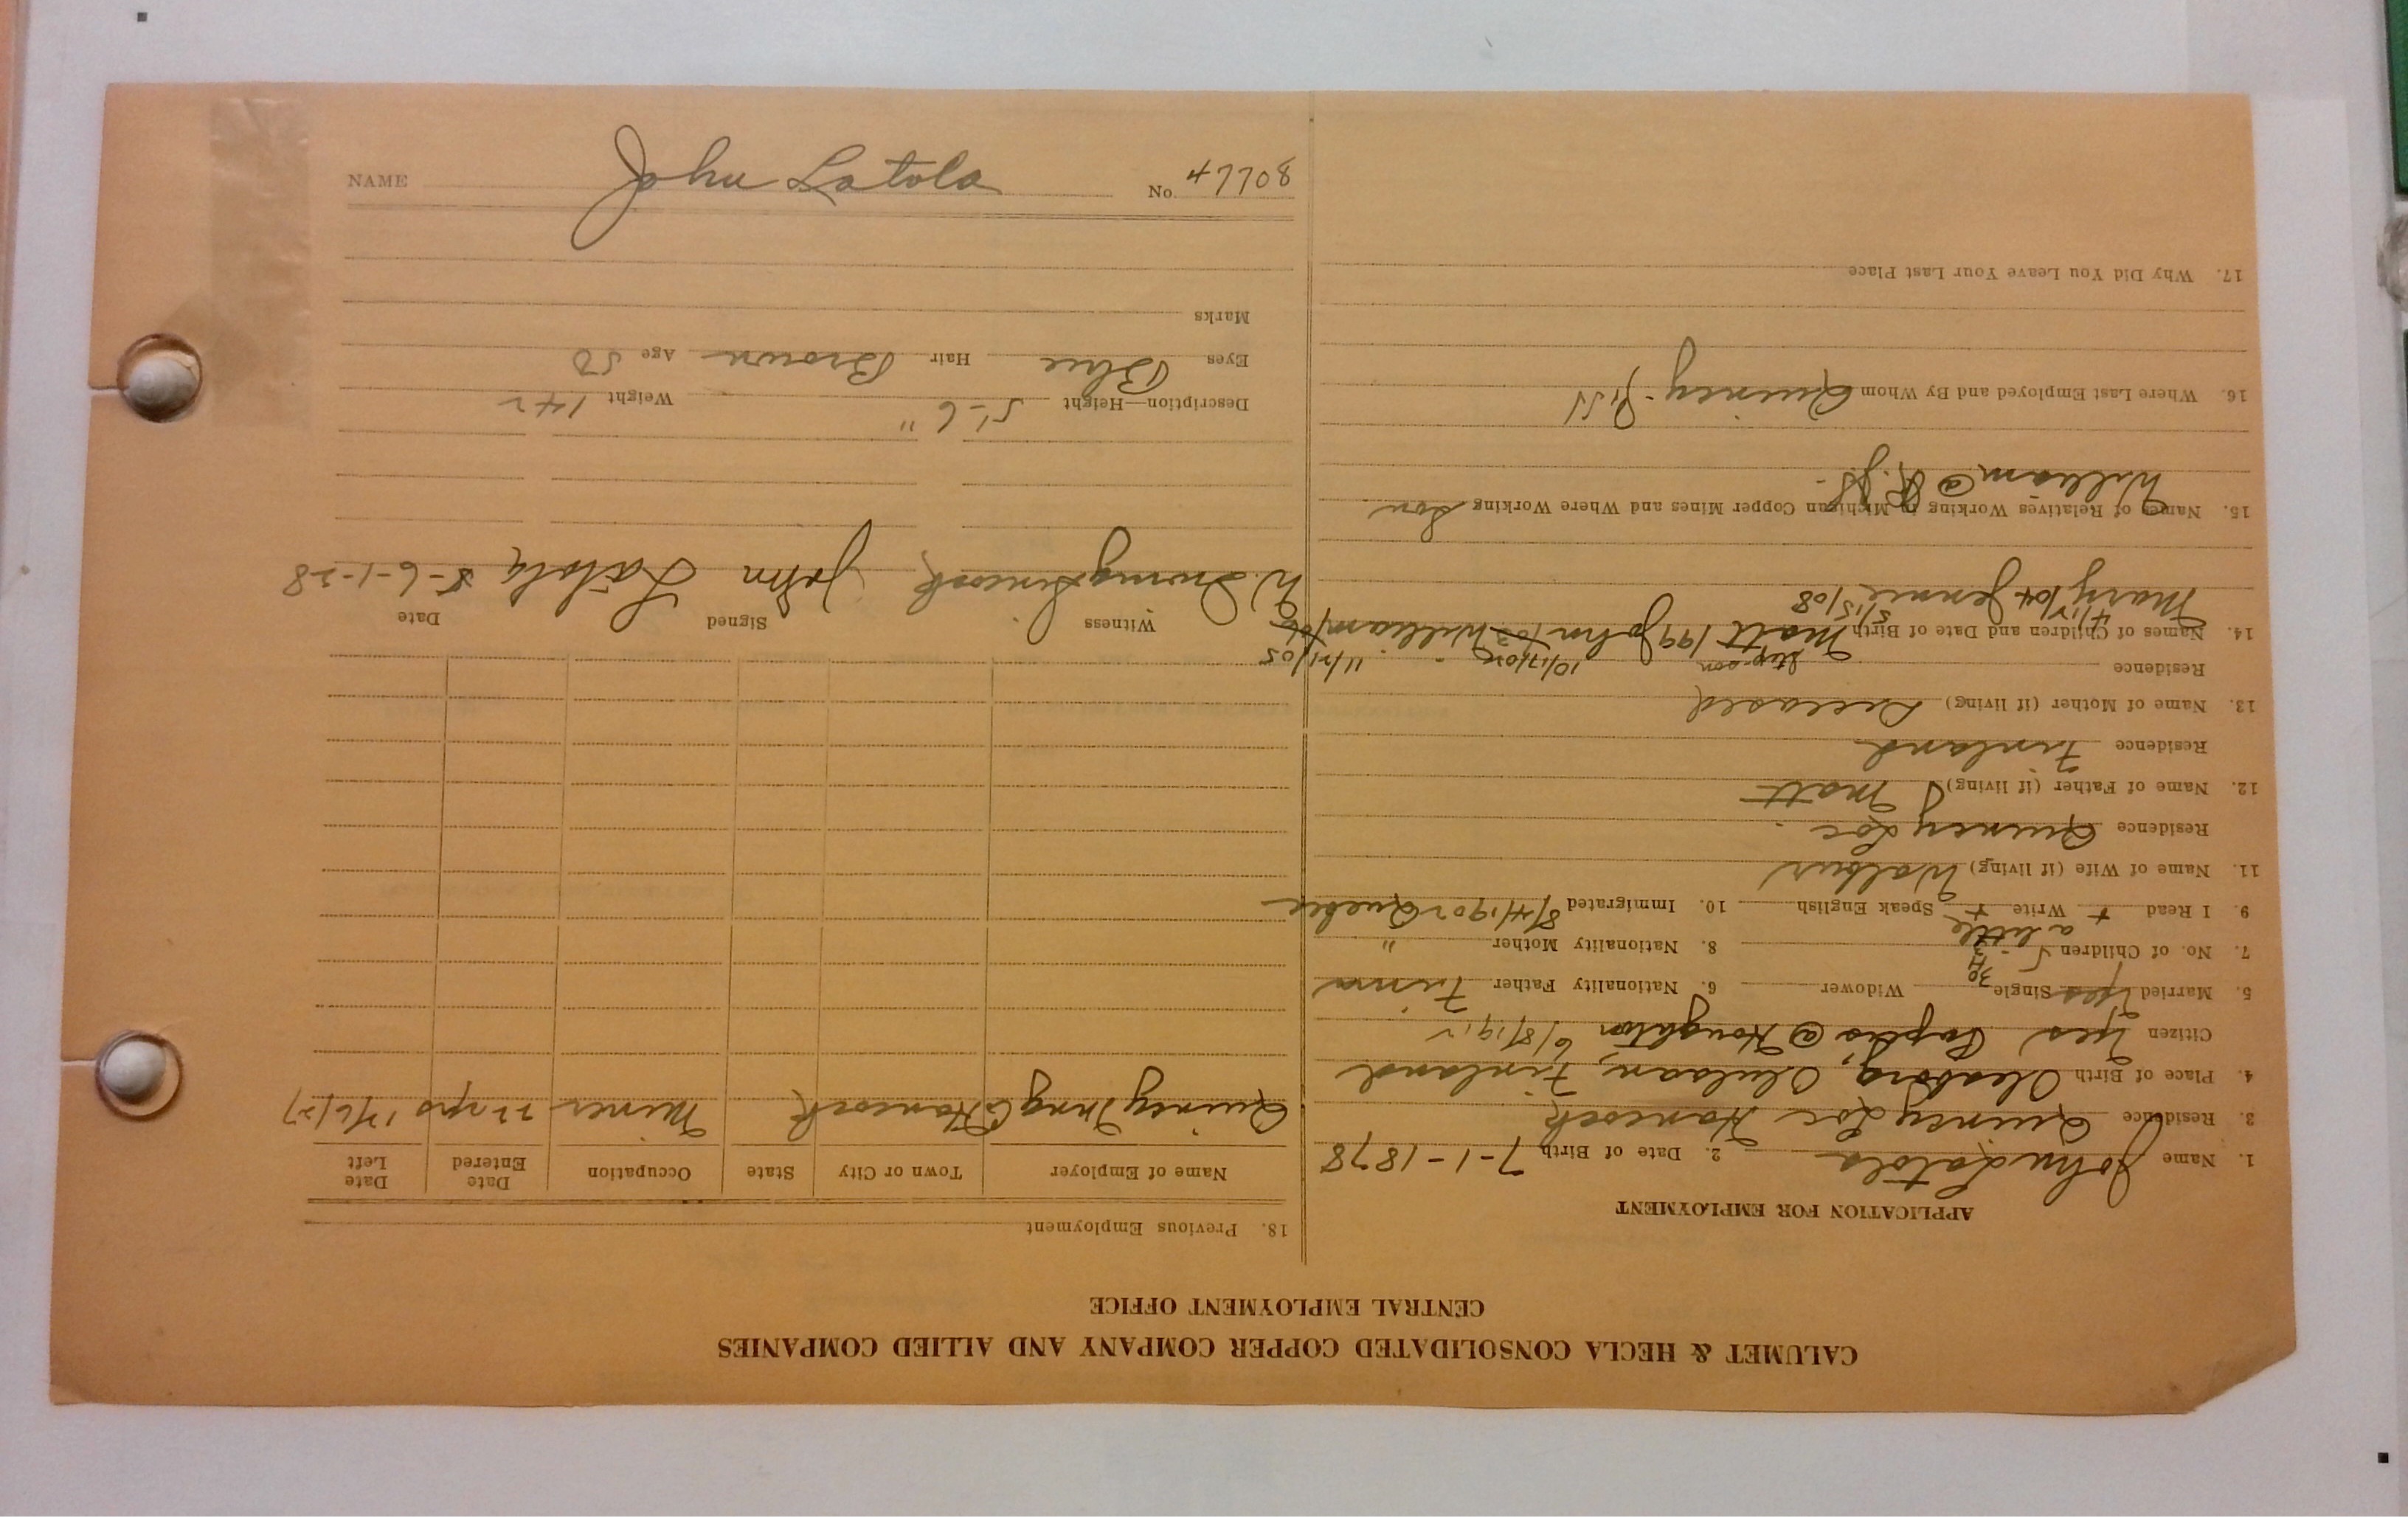 CALUMET & HECLA CONSOLIDATED COPPER COMPANY AND ALLIED COMPANIES
CENTRAL EMPLOYMENT OFFICE
APPLICATION FOR EMPLOYMENT
1. Name John Latola 2. Date of Birth 7-1-1878
3. Residence Quincy Loc Hancock
4. Place of Birth Oleaborg, Finland
Citizen Yes @ Houghton 6/8/1912
5. Married Yes Single Widower 6. Nationality Father Finn
7. No. of Children 5 8. Nationality Mother "
a little
9. I Read + Write + Speak English 10. Immigrated 8/4/1902 Quebec
11. Name of Wife (if living) Walbur
Residence Quincy Loc.
12. Name of Father (if living) Matt
Residence Finland
13. Name of Mother (if living) Deceased
Residence
Step-son 10/17/02 11/21/05
14. Names of Children and Date of Birth Matt/99 John/03 William/06
4/12 5/15/08
Mary/04 Jennie
15. Names of Relatives Working in Michigan Copper Mines and Where Working Son
William @
16. Where Last Employed and By Whom Quincy -
17. Why Did You Leave Your Last Place
18. Previous Employment
Name of Employer Town or City State Occupation Date Entered Date Left
Quincy Mng Co Hancock Miner 22 yrs 12/6/27
Witness Signed Date
W. John Latola 8-6-1-28
Description—Height 5'-6" Weight 142
Eyes Blue Hair Brown Age 50
Marks
NAME John Latola No. 47708